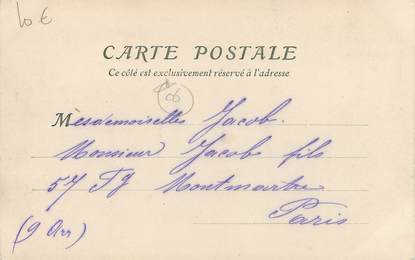 10 €
CARTE POSTALE
Ce côté est exclusivement réservé à l'adresse
Mesdemoiselles Jacob.
Monsieur Jacob fils
57 Fg Montmartre
Paris
(9 Arr)